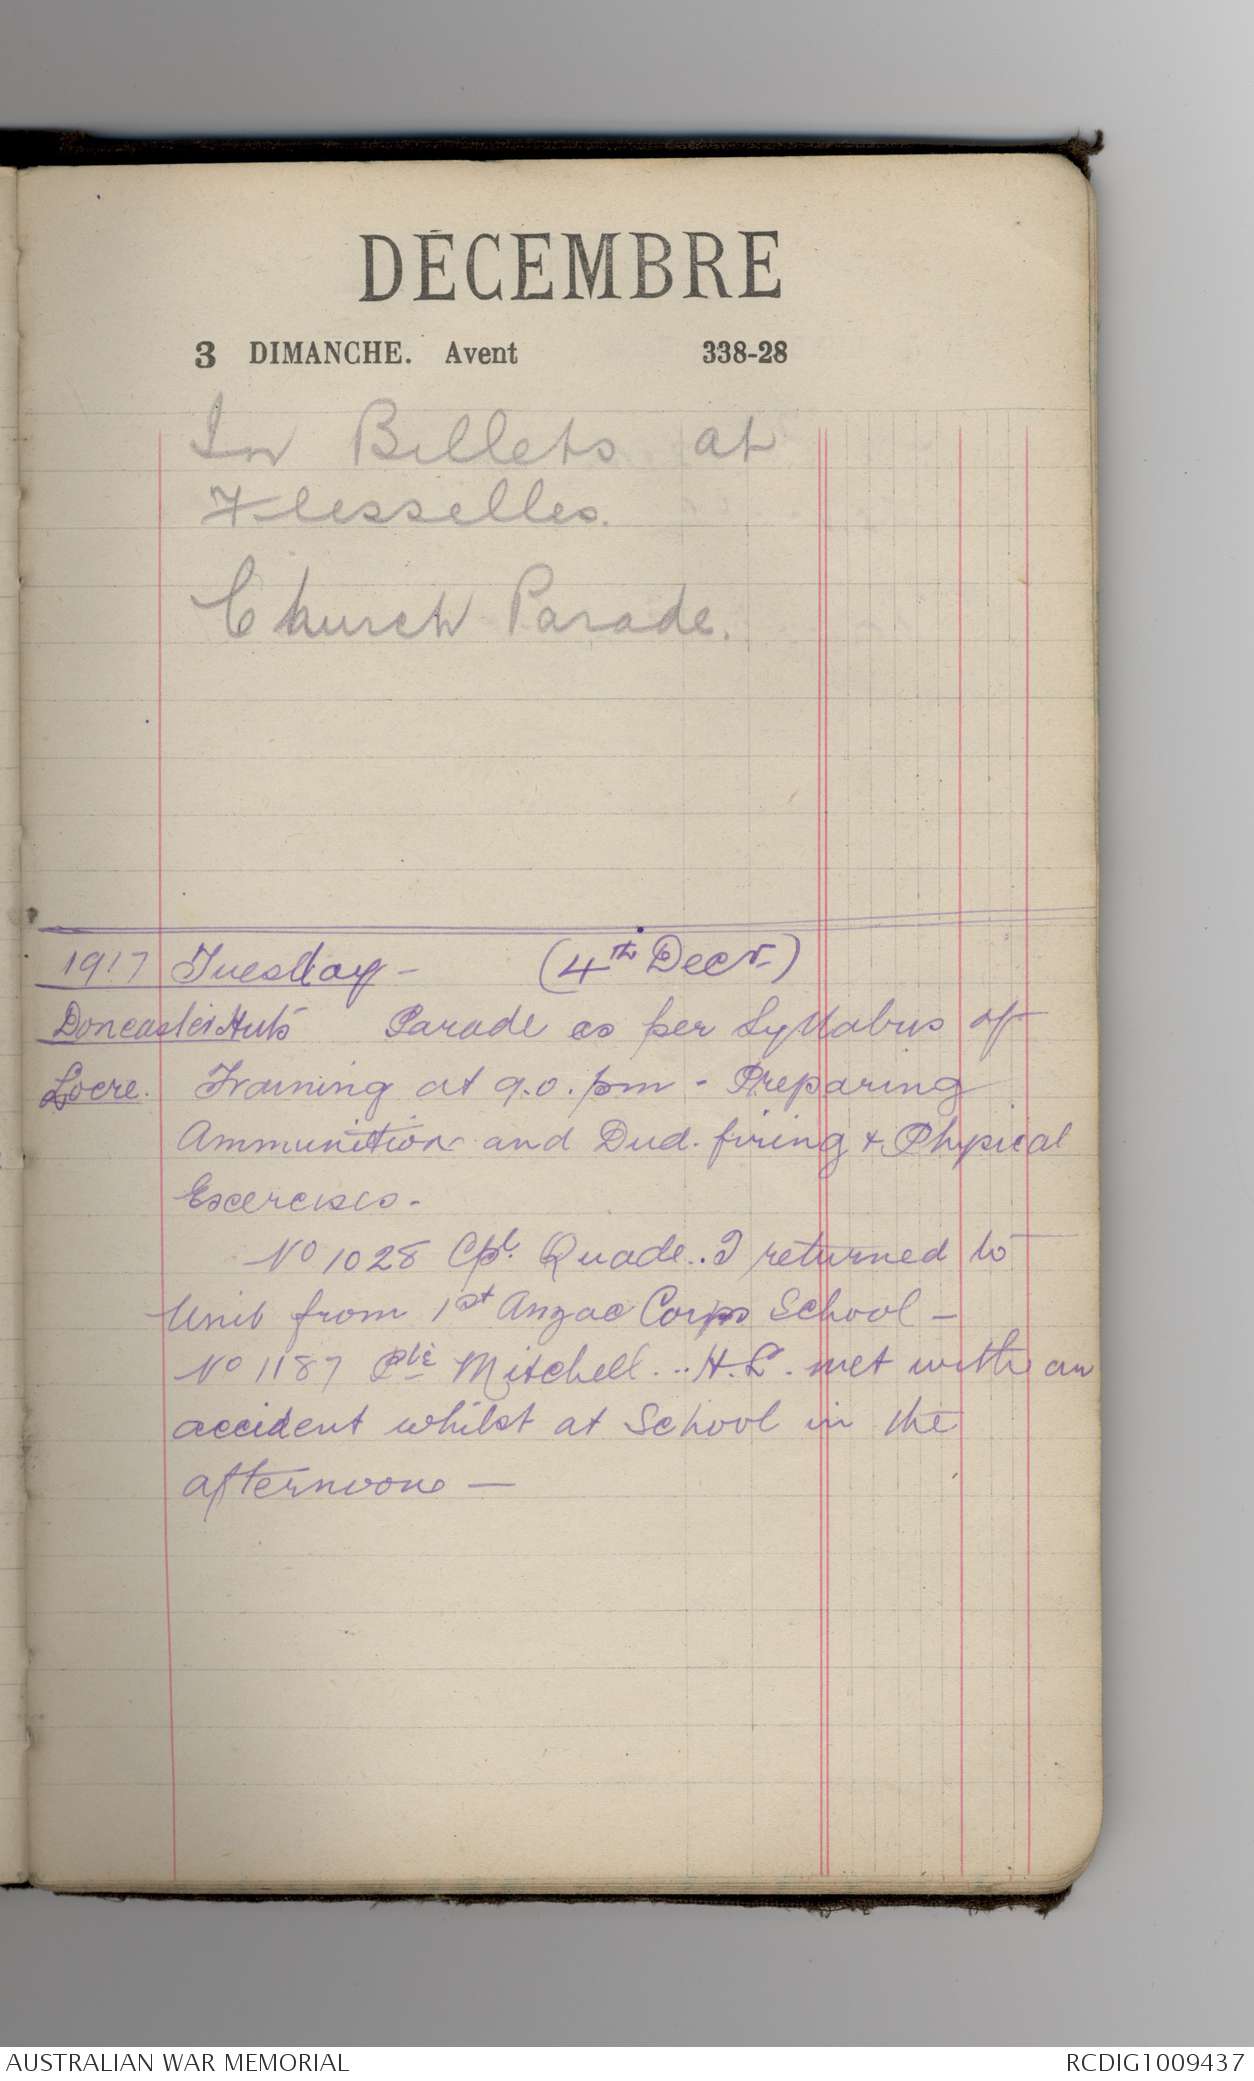 DÉCEMBRE
3 DIMANCHE. Avent 338-28
In Billets at
Flesselles.
Church Parade.
1917 Tuesday - (4th Decr.)
Doncaster Huts Parade as per Syllabus of
Locre. Training at 9.0. pm - Preparing
Ammunition and Dud. firing & Physical
Excercises.-
No 1028 Cpl. Quade..J returned to
Unit from 1st Anzac Corps School -
No 1187 Pte Mitchell...H.L. met with an
accident whilst at School in the
afternoon -
AUSTRALIAN WAR MEMORIAL RCDIG1009437